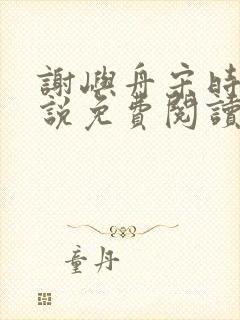 謝嶼舟宋時
說免費閱讀
童丹